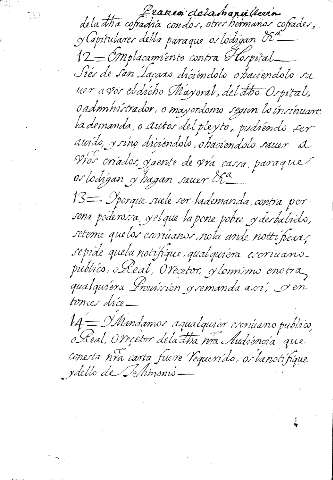 Practica de la chancilleria
de la dha cofradia con dos otros hermanos cofrades,
y Capitulares della paraque os lo digan &ca
12= Emplacamiento contra Hospital
Si es de San Lazaro diciendolo o haciendolo sa
uer a vos el dicho Mayoral, del dho Ospital,
o administrador, o mayordomo segun lo insinuare
la demanda, o autos del pleyto, pudiendo ser
auido, y sino diciendolo, o haciendo sauer a
vros criados, y gente de vra cassa, paraque
os lo digan y hagan sauer &ca
13= Y porque suele ser la demanda, contra per
sona poderosa, y el que la pone pobre, y desbalido,
se teme que los escriuanos, no la ande nottificar,
se pide que la notifique, qualquiera escriuano
publico, o Real, o Recetor, y lo mismo en otra
qualquiera Provision y se manda asi, y en
tonces dice
14= Y Mandamos a qualquier escriuano publico,
o Real, o Recetor de la dha nra Audiencia que
con esta nra carta fuere requerido, os la notifique
y dello de Testimonio